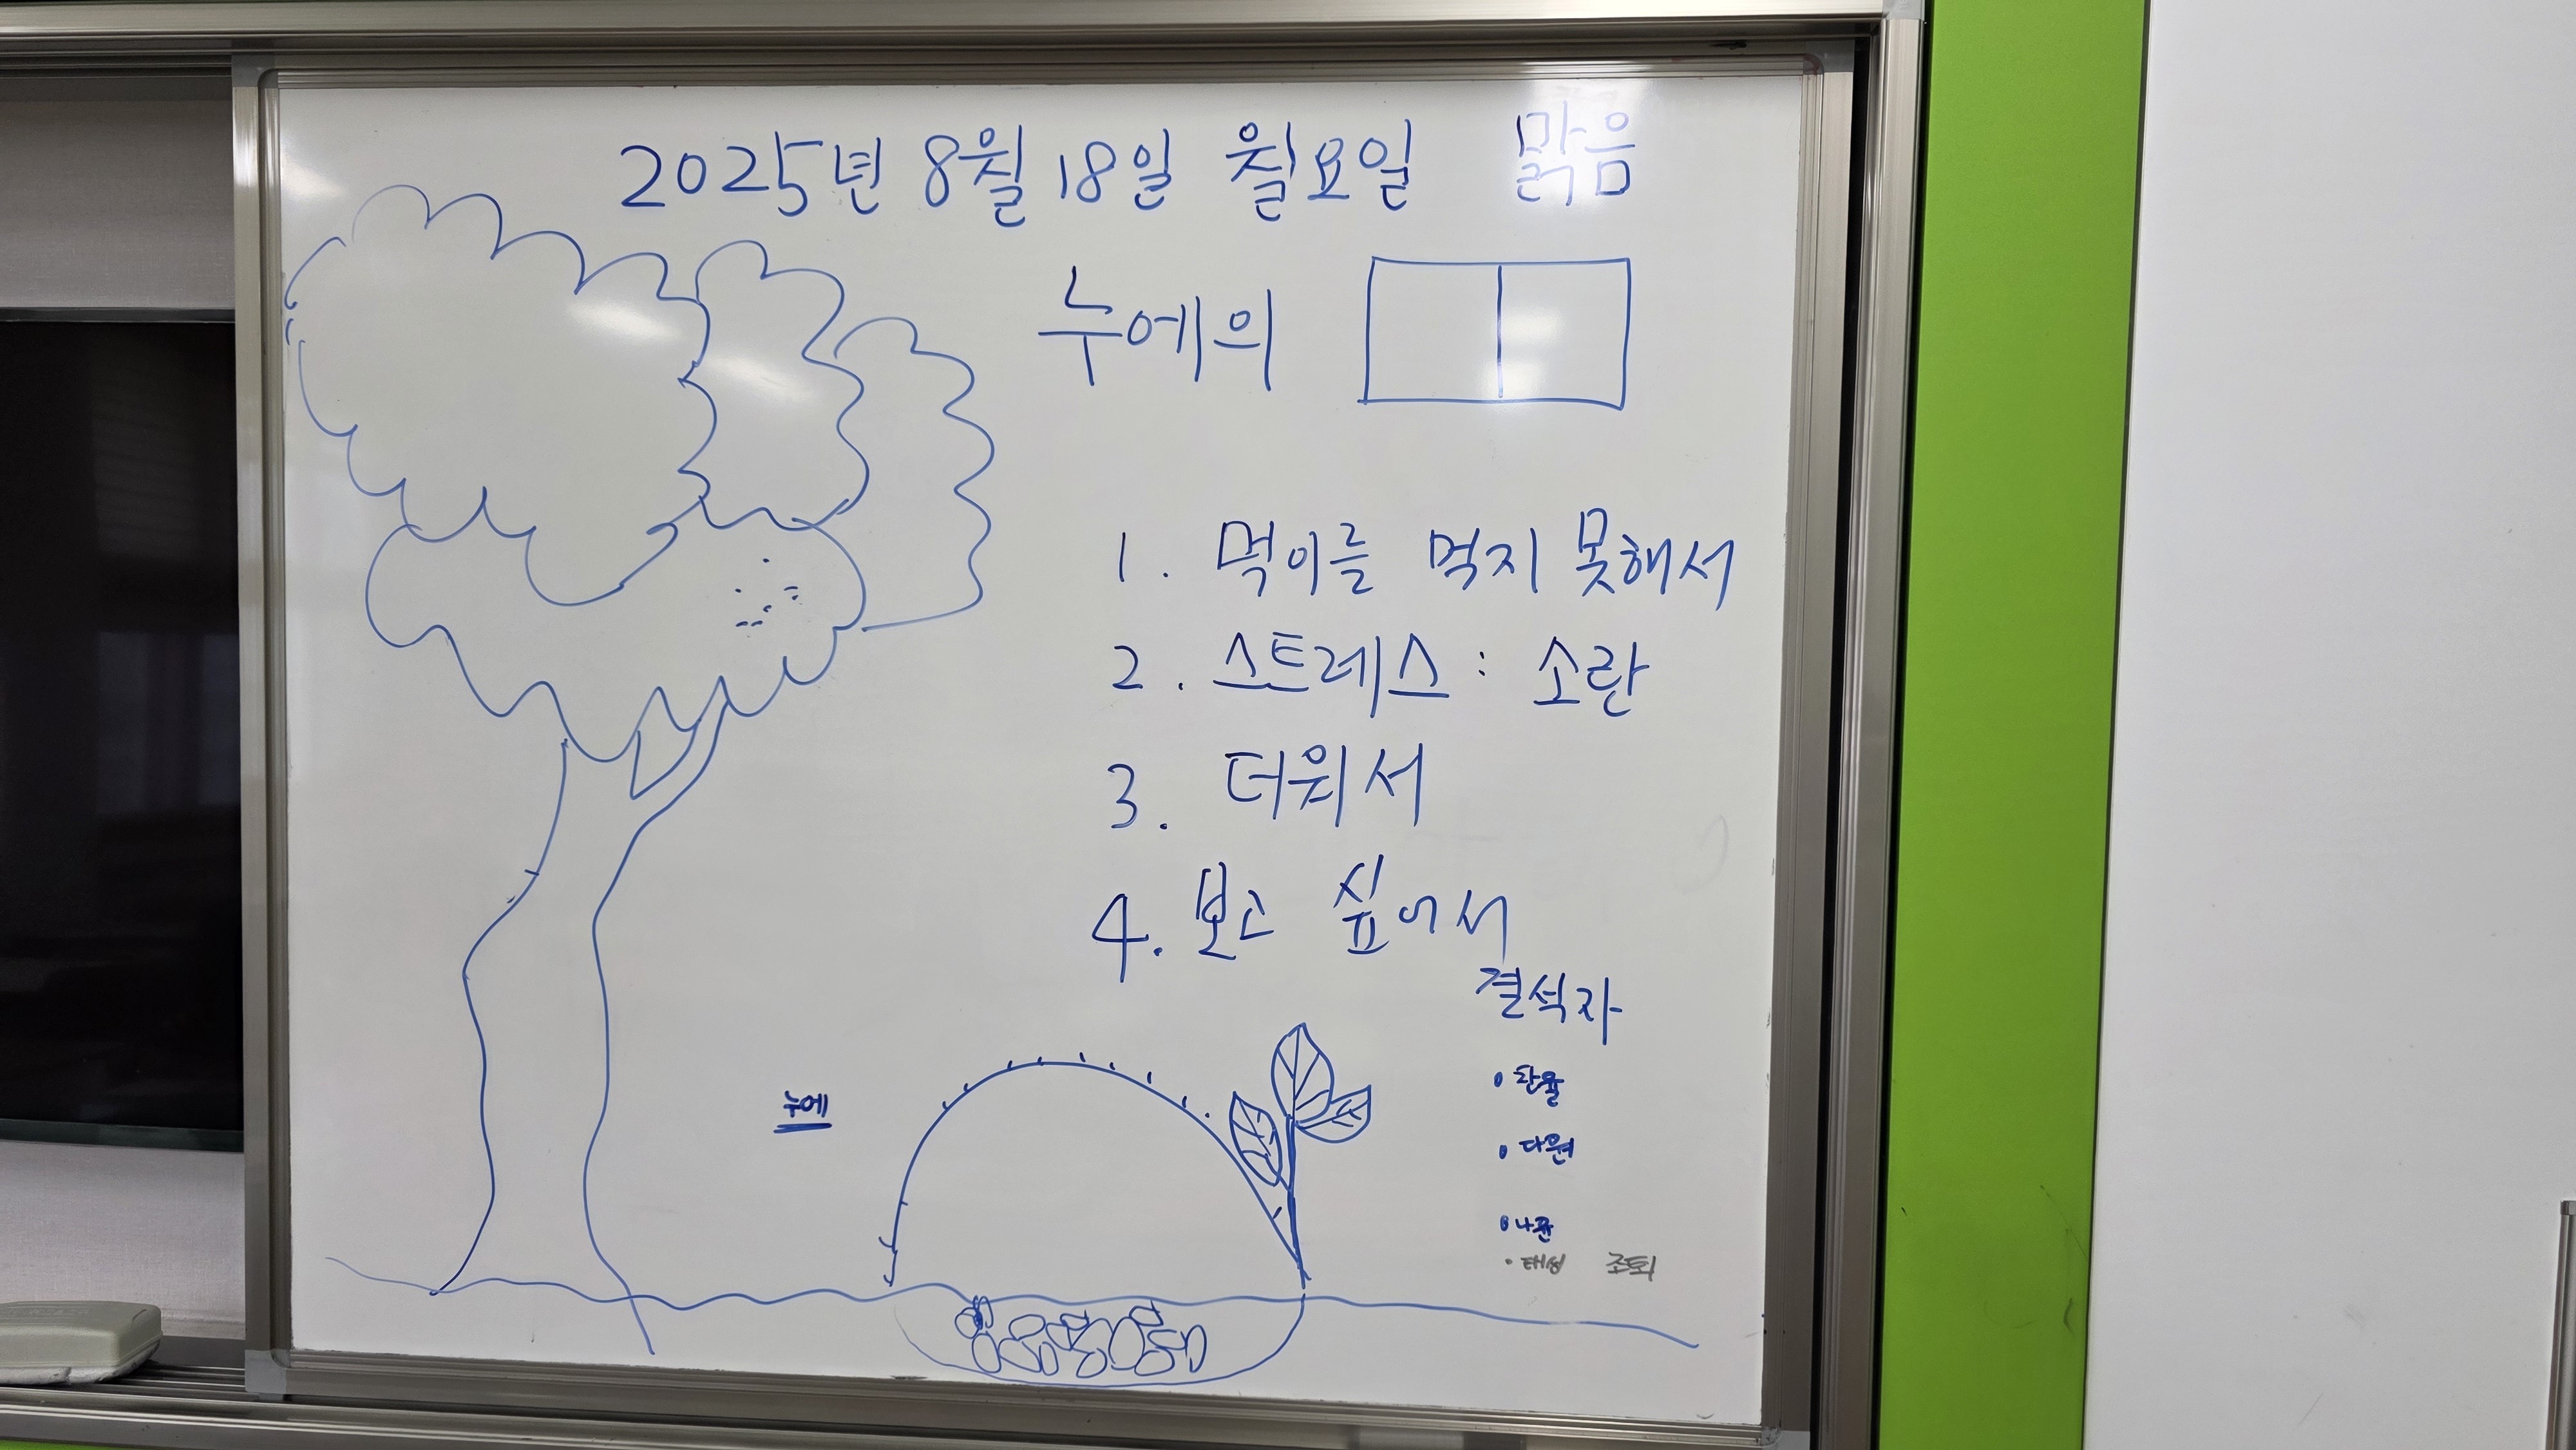 2025년 8월 18일 월요일 맑음
누에의
1. 먹이를 먹지 못해서
2. 스트레스 : 소란
3. 더워서
4. 보고 싶어서
결석자
누에
• 한율
• 다원
• 나윤
• 태성 조퇴